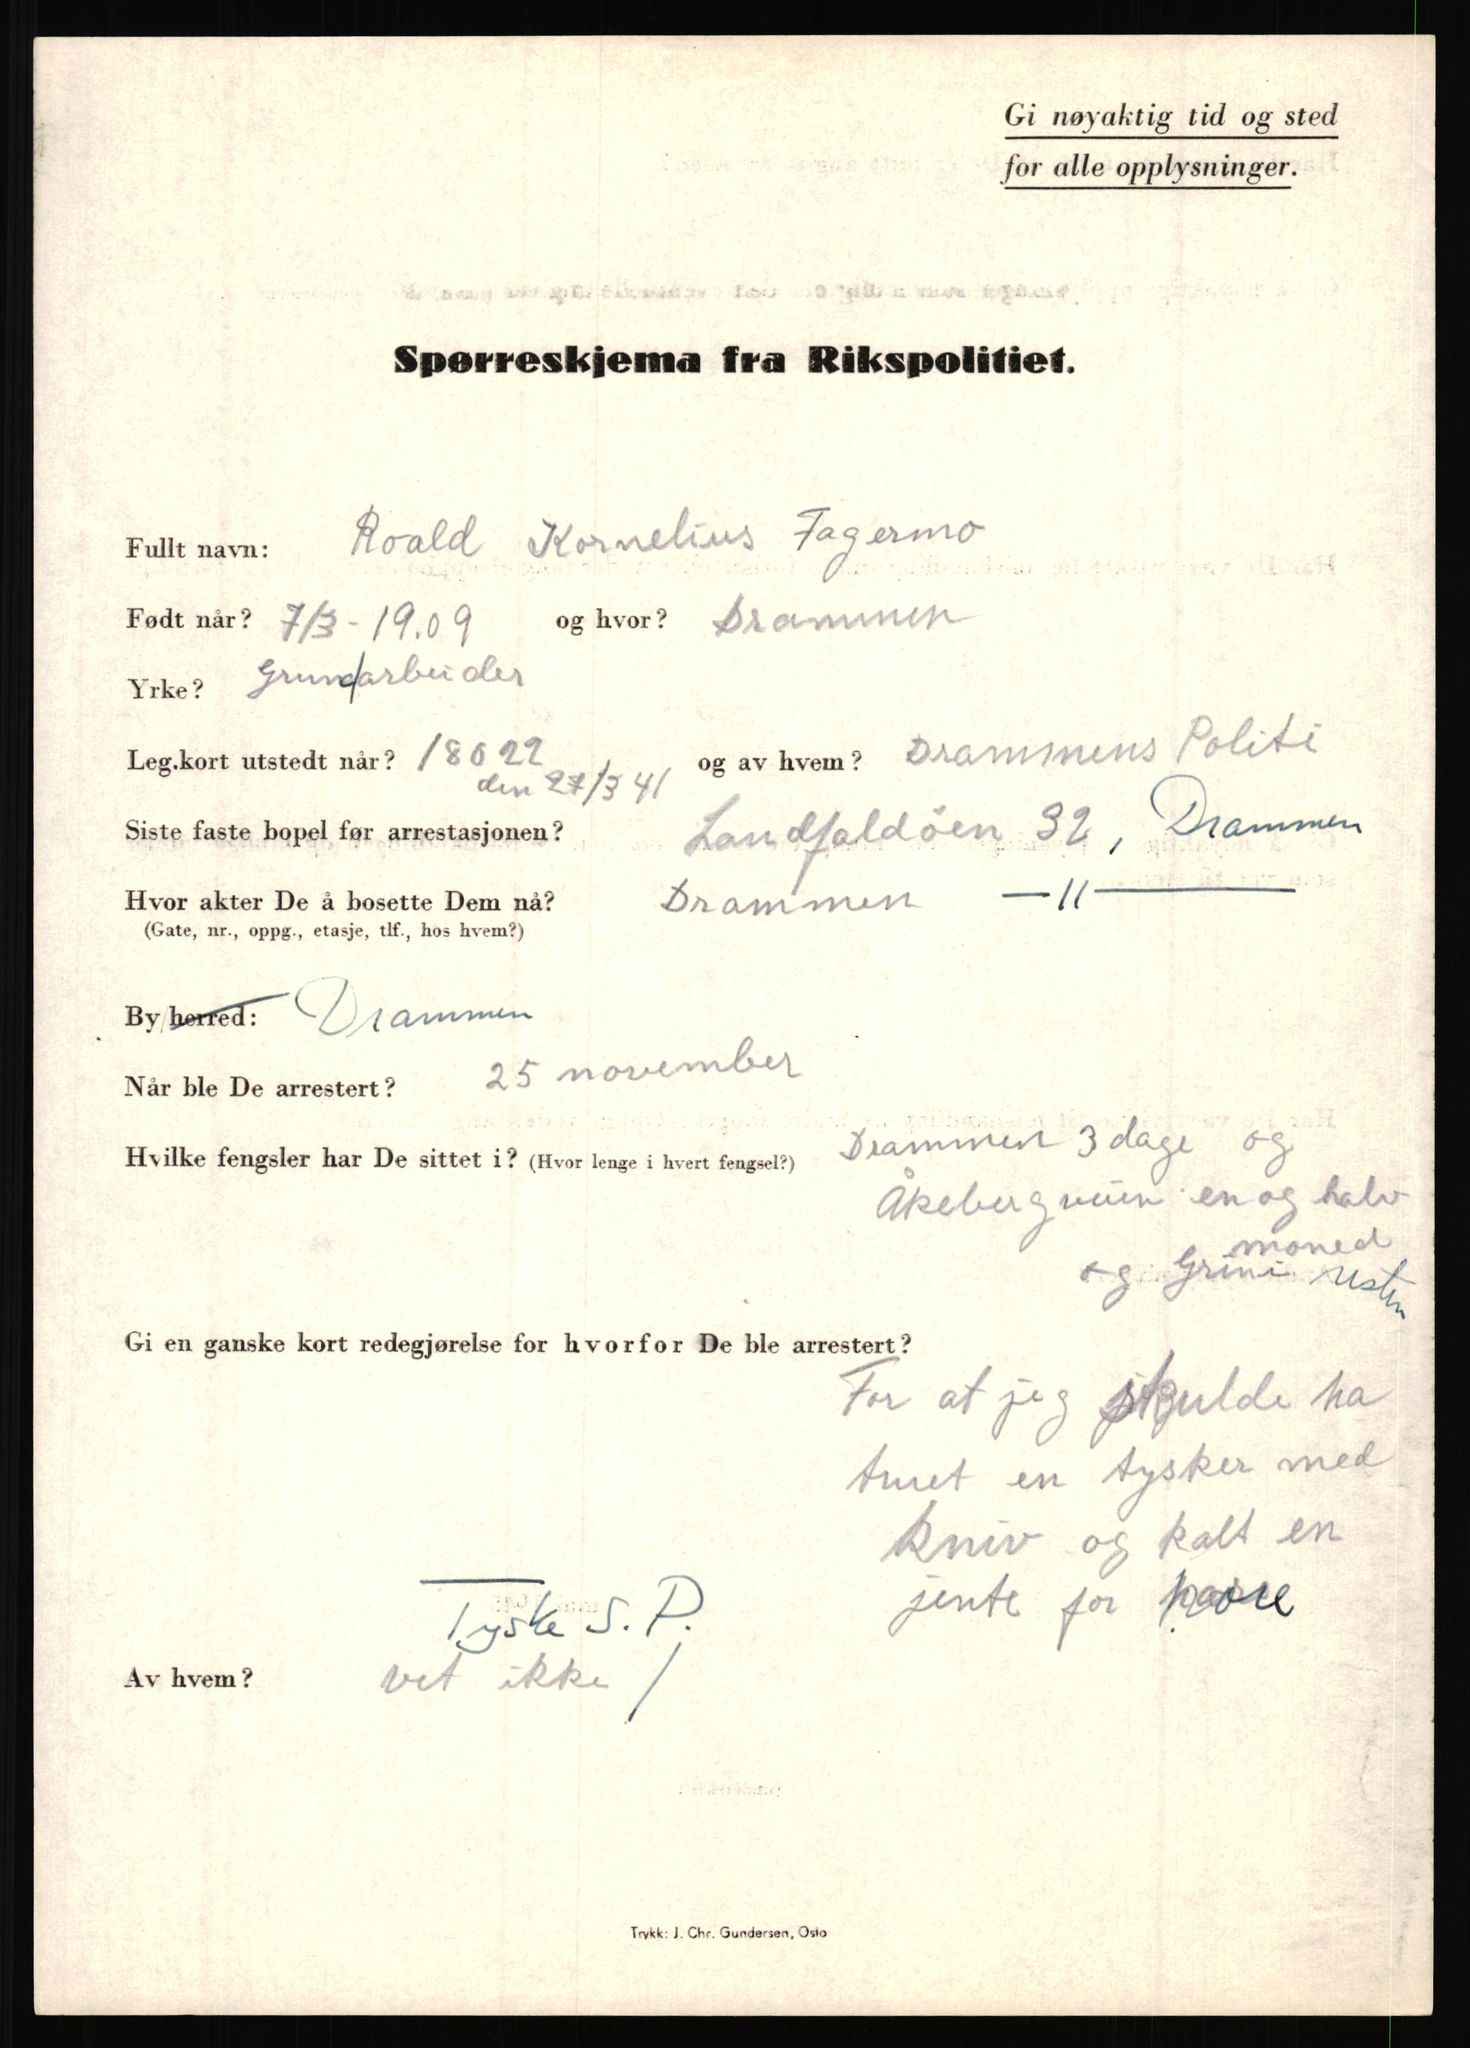 Gi nøyaktig tid og sted
for alle opplysninger.
Spørreskjema fra Rikspolitiet.
Fullt navn: Roald Kornelius Fagermo
Født når? 7/3 - 19.09 og hvor? Drammen
Yrke? Grundarbeider
Leg.kort utstedt når? 18022 og av hvem? Drammens Politi
den 27/3 41
Siste faste bopel før arrestasjonen? Landfaldöen 32, Drammen
Hvor akter De å bosette Dem nå? Drammen —11—
(Gate, nr., oppg., etasje, tlf., hos hvem?)
By/herred: Drammen
Når ble De arrestert? 25 november
Hvilke fengsler har De sittet i? (Hvor lenge i hvert fengsel?) Drammen 3 dage og
Åkebergveien en og halv
moned
og Grini resten
Gi en ganske kort redegjørelse for hvorfor De ble arrestert?
For at jeg skulde ha
truet en tysker med
kniv og kalt en
jente for hore
Tyske S.P.
Av hvem? vet ikke /
Trykk: J. Chr. Gundersen, Oslo